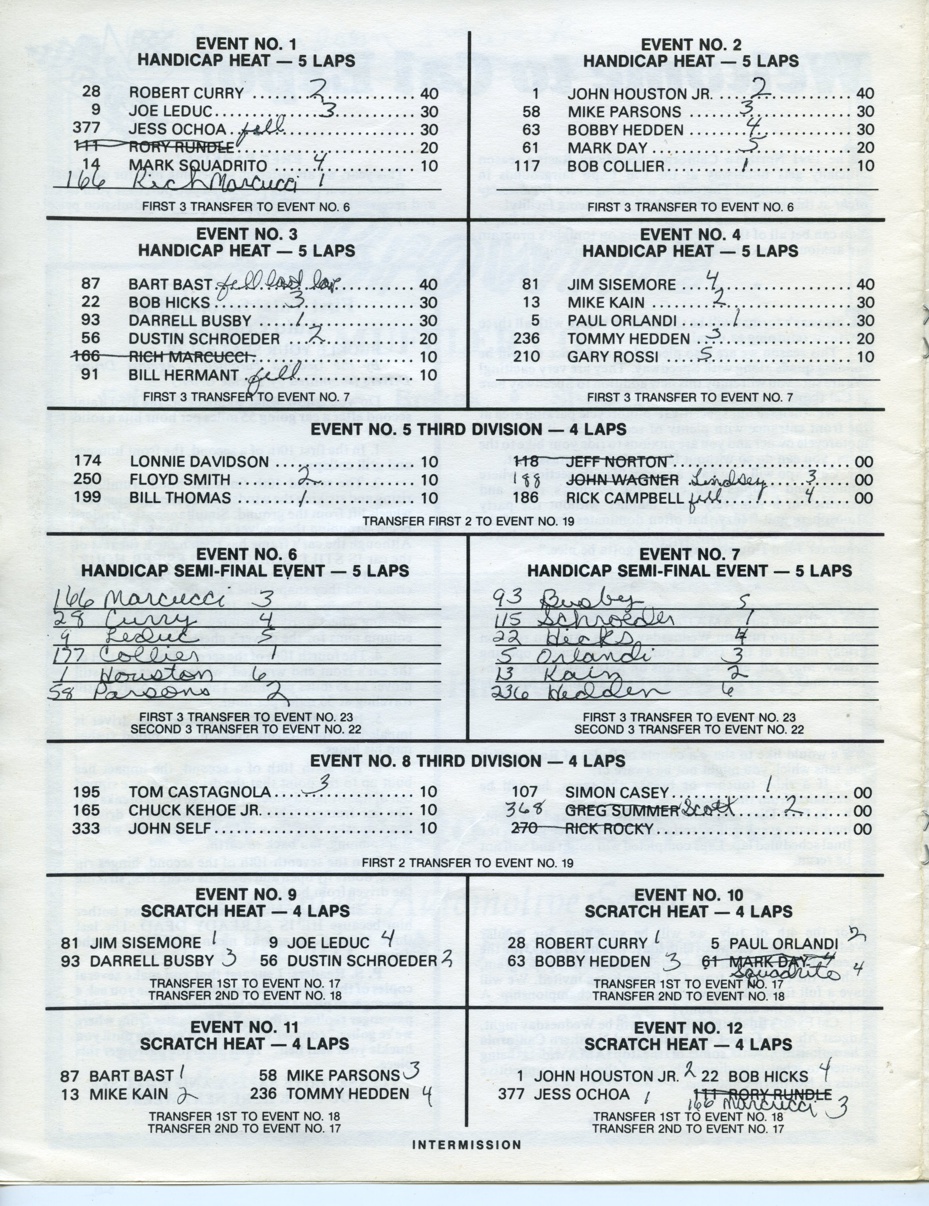 EVENT NO. 1
HANDICAP HEAT — 5 LAPS
28 ROBERT CURRY 2 40
9 JOE LEDUC 3 30
377 JESS OCHOA fell 30
111 RORY RUNDLE 20
14 MARK SQUADRITO 4 10
166 Rich Marcucci 1
FIRST 3 TRANSFER TO EVENT NO. 6
EVENT NO. 2
HANDICAP HEAT — 5 LAPS
1 JOHN HOUSTON JR. 2 40
58 MIKE PARSONS 3 30
63 BOBBY HEDDEN 4 30
61 MARK DAY 5 20
117 BOB COLLIER 1 10
FIRST 3 TRANSFER TO EVENT NO. 6
EVENT NO. 3
HANDICAP HEAT — 5 LAPS
87 BART BAST fell last lap 40
22 BOB HICKS 3 30
93 DARRELL BUSBY 1 30
56 DUSTIN SCHROEDER 2 20
166 RICH MARCUCCI 10
91 BILL HERMANT fell 10
FIRST 3 TRANSFER TO EVENT NO. 7
EVENT NO. 4
HANDICAP HEAT — 5 LAPS
81 JIM SISEMORE 4 40
13 MIKE KAIN 2 30
5 PAUL ORLANDI 1 30
236 TOMMY HEDDEN 3 20
210 GARY ROSSI 5 10
FIRST 3 TRANSFER TO EVENT NO. 7
EVENT NO. 5 THIRD DIVISION — 4 LAPS
174 LONNIE DAVIDSON 10
250 FLOYD SMITH 2 10
199 BILL THOMAS 1 10
118 JEFF NORTON 00
188 JOHN WAGNER Lindsey 3 00
186 RICK CAMPBELL fell 4 00
TRANSFER FIRST 2 TO EVENT NO. 19
EVENT NO. 6
HANDICAP SEMI-FINAL EVENT — 5 LAPS
166 Marcucci 3
28 Curry 4
9 Leduc 5
177 Collier 1
1 Houston 6
58 Parsons 2
FIRST 3 TRANSFER TO EVENT NO. 23
SECOND 3 TRANSFER TO EVENT NO. 22
EVENT NO. 7
HANDICAP SEMI-FINAL EVENT — 5 LAPS
93 Busby 5
115 Schroeder 1
22 Hicks 4
5 Orlandi 3
13 Kain 2
236 Hedden 6
FIRST 3 TRANSFER TO EVENT NO. 23
SECOND 3 TRANSFER TO EVENT NO. 22
EVENT NO. 8 THIRD DIVISION — 4 LAPS
195 TOM CASTAGNOLA 3 10
165 CHUCK KEHOE JR. 10
333 JOHN SELF 10
107 SIMON CASEY 1 00
368 GREG SUMMER Scott 2 00
270 RICK ROCKY 00
FIRST 2 TRANSFER TO EVENT NO. 19
EVENT NO. 9
SCRATCH HEAT — 4 LAPS
81 JIM SISEMORE 1 9 JOE LEDUC 4
93 DARRELL BUSBY 3 56 DUSTIN SCHROEDER 2
TRANSFER 1ST TO EVENT NO. 17
TRANSFER 2ND TO EVENT NO. 18
EVENT NO. 10
SCRATCH HEAT — 4 LAPS
28 ROBERT CURRY 1 5 PAUL ORLANDI 2
63 BOBBY HEDDEN 3 61 MARK DAY 4
Squadrito 4
TRANSFER 1ST TO EVENT NO. 17
TRANSFER 2ND TO EVENT NO. 18
EVENT NO. 11
SCRATCH HEAT — 4 LAPS
87 BART BAST 1 58 MIKE PARSONS 3
13 MIKE KAIN 2 236 TOMMY HEDDEN 4
TRANSFER 1ST TO EVENT NO. 18
TRANSFER 2ND TO EVENT NO. 17
EVENT NO. 12
SCRATCH HEAT — 4 LAPS
1 JOHN HOUSTON JR. 2 22 BOB HICKS 4
377 JESS OCHOA 1 111 RORY RUNDLE
166 Marcucci 3
TRANSFER 1ST TO EVENT NO. 18
TRANSFER 2ND TO EVENT NO. 17
INTERMISSION